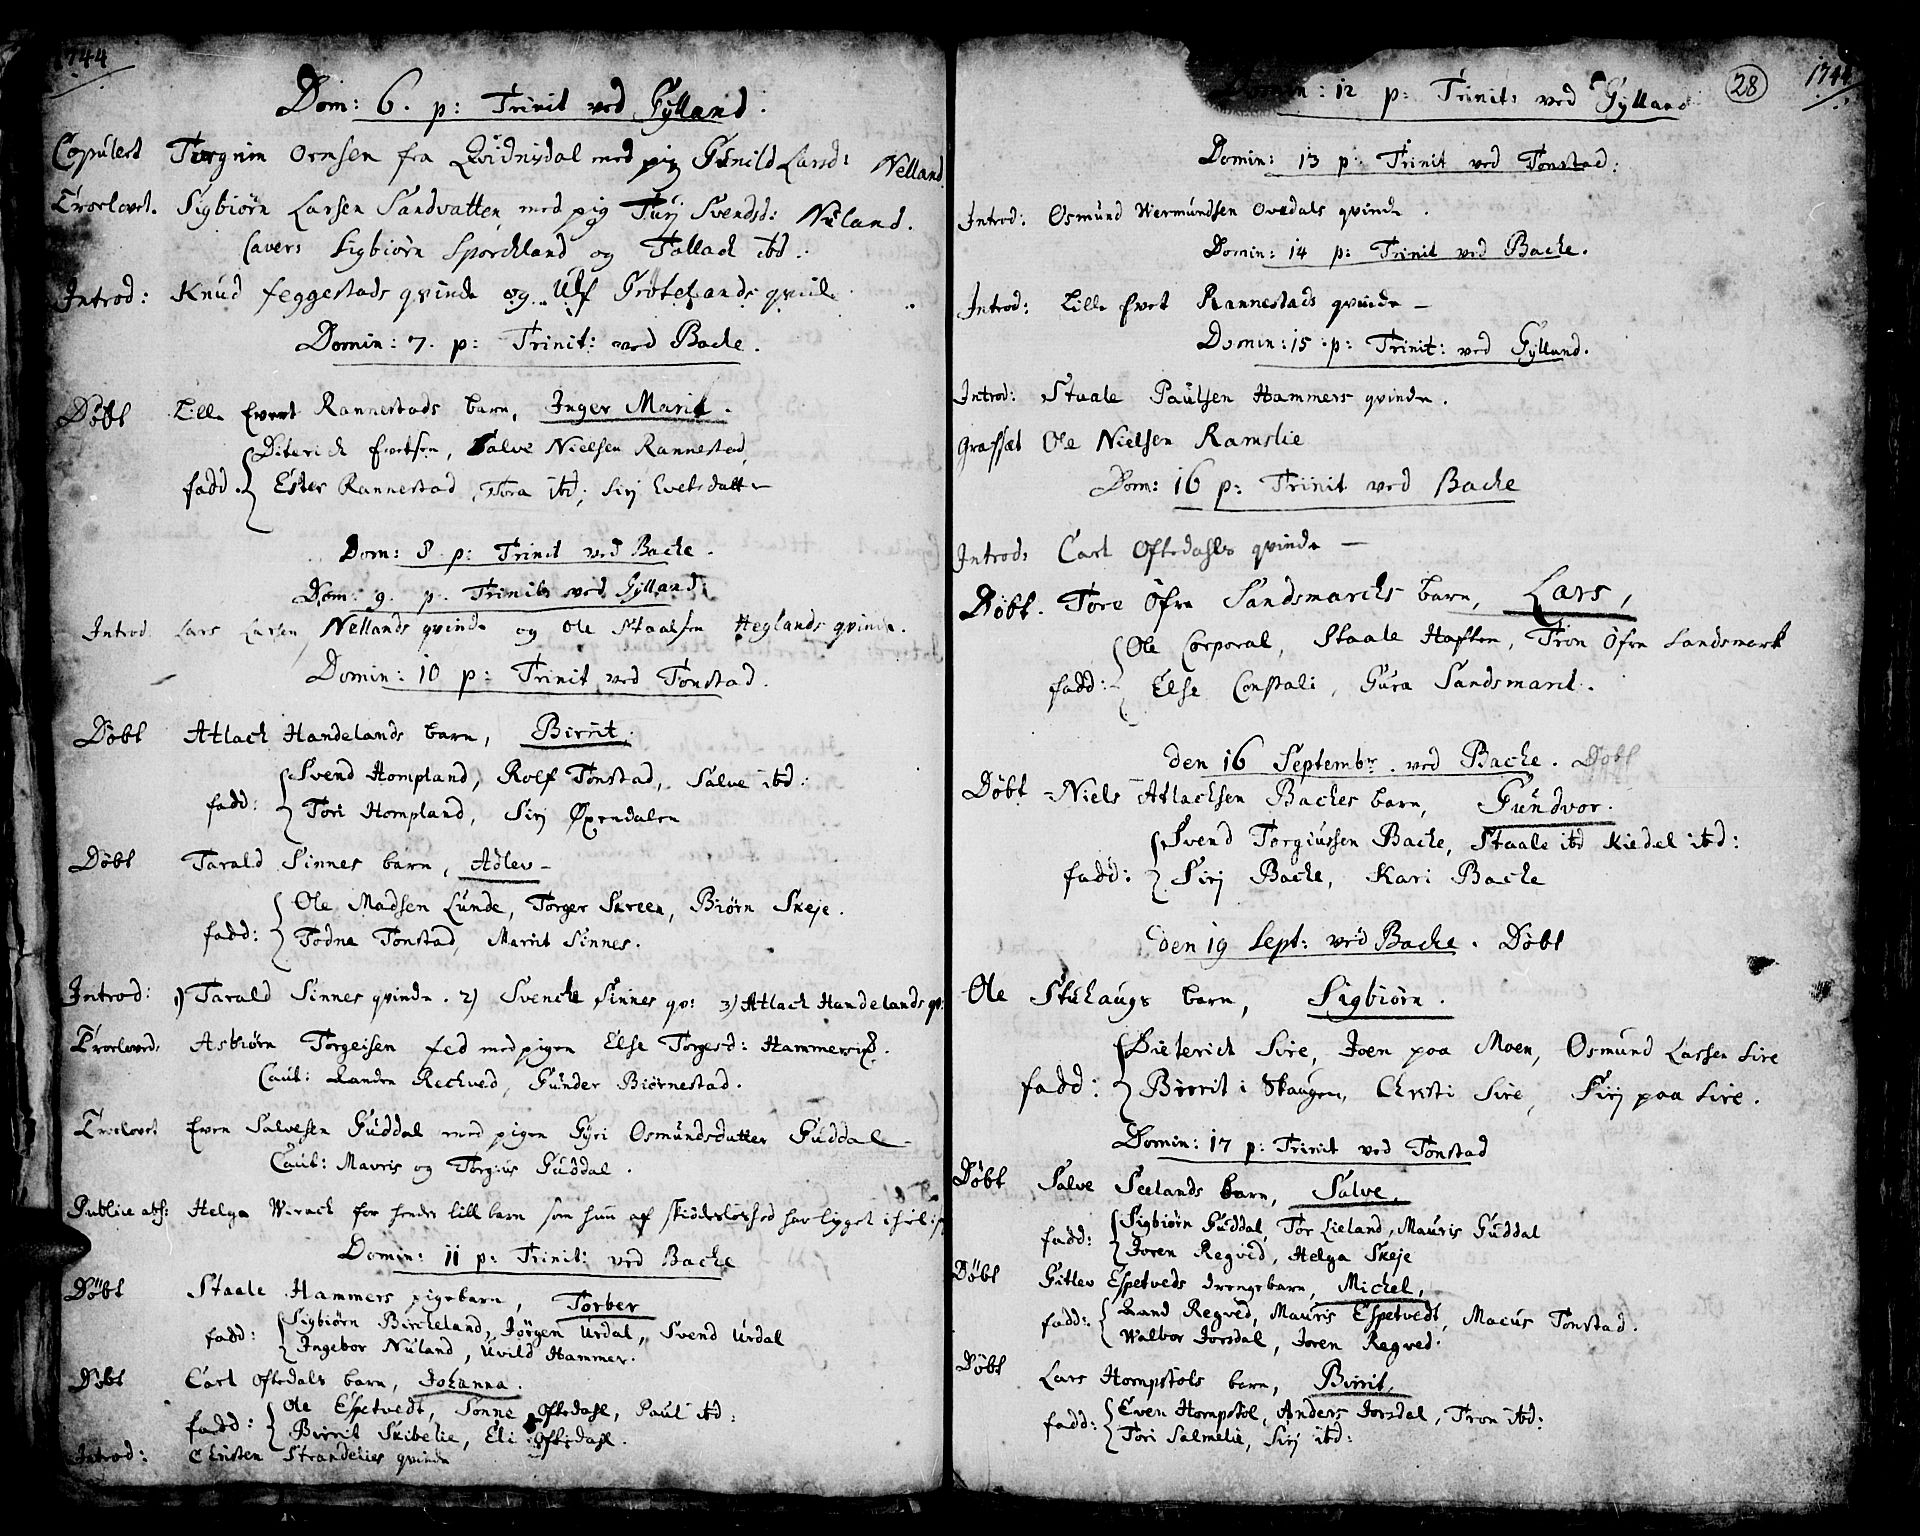 1744
Dom: 6. p: Trinit ved Gÿlland.
Copulert Torgrim Ormsen fra Qvidnisdal med pig Gunild Larsd: Nelland
Troelovet. Sigbiørn Larsen Sandvatten med pig Turj Svendsd: Nuland.
Cavers Sigbiørn Sporckland og Tallach ibd.
Introd: Knud feggestads qvinde og Ulf
Domin: 7. p: Trinit: ved Backe.
Døbt Lille Evert Rannestads barn, Inger Marit.
Diterich Evertsen, Salve Nielsen Rannestad,
fadd. Ester Rannestad, Tora ibd; Sirj
Dom: 8. p: Trinit ved Backe.
Dom: 9. p. Trinit: ved Gÿlland:
Introd. Lars Larsen Nellands qvinde og Ole Staalsen Heglands qvinde.
Domin: 10 p: Trinit ved Tonstad.
Døbt Atlach Handelands barn, Birrit,
Svend Hompland, Rolf Tonstad, Salve ibd:
fadd: Tori Hompland, Sirj Øxendalen
Døbt Tarald Sinnes barn, Adlev-
Ole Madsen Lunde, Torger Skreen, Biørn Skeje.
fadd: Todne Tonstad, Marrit Sinnes.
Introd: 1) Tarald Sinnes qvinde. 2) Svencke Sinnes qv: 3) Atlach Handelands qv:
Troeloved: Asbiørn Torgeisen fed med pigen Else Torgesd:
Caut: Randen Rechved, Gunder Biørnestad.
Troelovet Even Salvesen Guddal med pigen Gyri Osmundsdatter Guddal
Caut: Mauris og Torgius Guddal.
Publice abs: Helga Wirach for hendes lill barn som hun af
Domin: 11 p: Trinit: ved Backe
Døbt Staale Hammers pigebarn, Torber
Sigbiørn Birckeland, Jørgen Urdal, Svend Urdal
fadd: Ingebor Nuland, Uvild Hammer.
Døbt Carl Oftedals barn, Johanna.
Ole Espetvedt, Sønne Oftedahl, Paul ibd:
fadd: Birrit Skibelie, Eli Oftedahl.
Introd: Christen Strandelies qvinde
28
1744
Domin: 12 p: Trinit: ved Gÿlland
Domin: 13 p: Trinit ved Tonstad:
Introd: Osmund Wermundsen Ovedals qvinde.
Domin: 14 p: Trinit ved Backe.
Introd: Lille Evert Rannestads qvinde —
Domin: 15 p: Trinit: ved Gÿlland.
Introd: Staale Paulsen Hammers qvinde.
Graffæst Ole Nielsen Ramslie
Dom: 16 p: Trinit ved Backe
Introd: Carl Oftedahls qvinde —
Døbt. Tore Øfre Sandsmarcks barn, Lars,
Ole Corporal, Staale Haften, Tron Øfre Sandsmark
fadd: Else Constali, Gura Sandsmarck.
den 16 Septembr. ved Backe. Døbt
Døbt Niels Atlachsen Backes barn, Gundvor.
Svend Torgiussen Backe, Staale ibd Kiedel ibd:
fadd: Sirj Backe, Kari Backe
den 19 Sept: ved Backe. Døbt
Ole Stuhaugs barn, Sigbiørn.
Dieterich Sire, Joen paa Moen, Osmund Lassen Sire
fadd: Birrit i Skaugen, Christi Sire, Sirj paa Sire.
Domin: 17 p: Trinit ved Tonstad
Døbt Salve Seelands barn, Salve,
Sigbiørn Guddal, Tor Lieland, Mauris Guddal
fadd: Joren Regved, Helga Skeje
Døbt Gitlev Espetveds drengebarn, Michel,
Rand Regved, Mauris Espetvedt, Macus Tonstad.
fadd: Walbor Josdal, Joren Regved.
Døbt Lars Hompstøls barn, Birrit,
Even Hompstøl, Anders Josdal, Tron ibd:
fadd: Tori Salmelie, Sirj ibd: